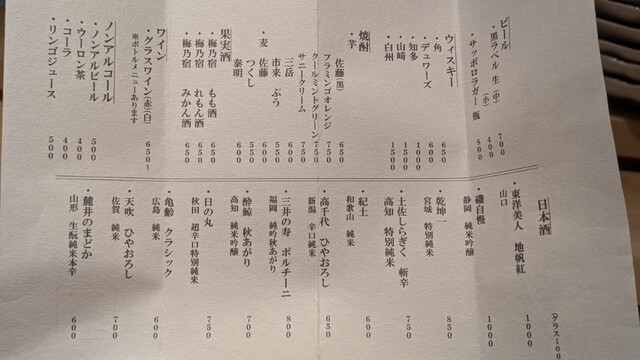 ビール
・黒ラベル 生 (中) 700
(小) 400
・サッポロラガー 瓶 800
ウィスキー
・角 650
・デュワーズ 600
・知多 1000
・山崎 1500
・白州 1500
焼酎
・芋
佐藤(黒) 650
フラミンゴオレンジ 750
クールミントグリーン 750
サニークリーム 750
三岳 600
市来 ぷう 550
つくし 550
・麦 佐藤 650
泰明 600
果実酒
・梅乃宿 もも酒 650
・梅乃宿 れもん酒 650
・梅乃宿 みかん酒 650
ワイン
・グラスワイン(赤)(白) 650~
※ボトルメニューあります
ノンアルコール
・ノンアルビール 500
・ウーロン茶 400
・コーラ 400
・リンゴジュース 500
日本酒
(グラス100
・東洋美人 地帆紅 1000
山口
・磯自慢 1000
静岡 純米吟醸
・乾坤一 850
宮城 特別純米
・土佐しらぎく 斬辛 750
高知 特別純米
・紀土 600
和歌山 純米
・高千代 ひやおろし 650
新潟 辛口純米
・三井の寿 ポルチーニ 800
福岡 純吟秋あがり
・酔鯨 秋あがり 700
高知 純米吟醸
・日の丸 750
秋田 超辛口特別純米
・亀齢 クラシック 600
広島 純米
・天吹 ひやおろし 700
佐賀 純米
・麓井のまどか 600
山形 生酛純米本辛